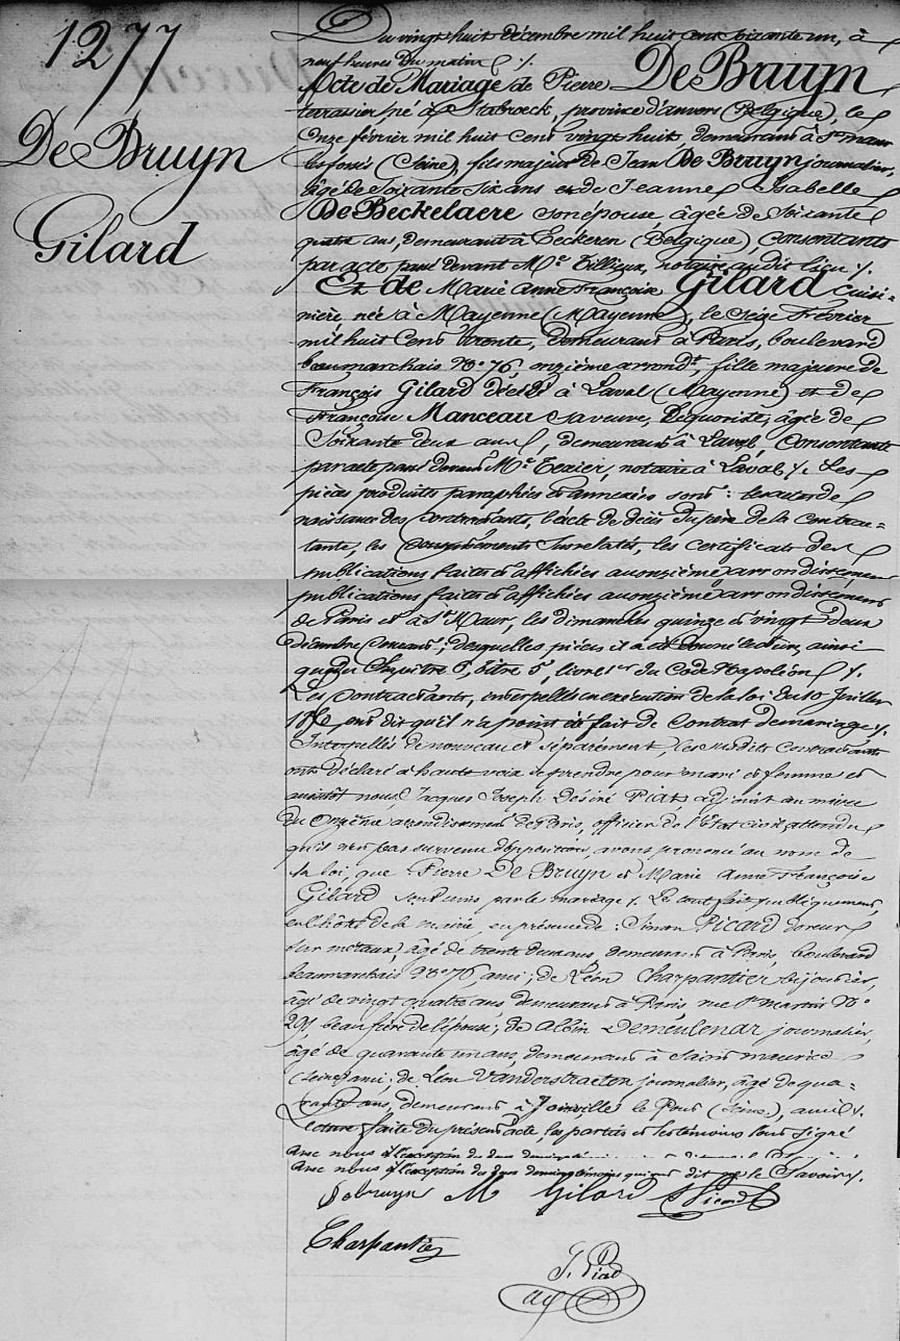 1277
De Bruyn
Gilard
Du vingt huit décembre mil huit cent soixante un, à
neuf heures du matin /.
Acte de Mariage de Pierre De Bruyn
terrassier né à Stabroeck, province d'anvers (Belgique), le
onze février mil huit cent vingt huit, demeurant à St maur
les fossés (Seine), fils majeur de Jean De Bruyn journalier,
âgé de Soixante Six ans et de Jeanne Isabelle
De Beckelaere son épouse âgée de Soixante
quatre ans, demeurant à Eeckeren (Belgique), Consentants
par acte passé devant Me Tillieux, notaire audit lieu /.
Et de Marie Anne Françoise Gilard Cuisi-
nière, née à Mayenne (Mayenne), le Seize Février
mil huit Cent trente, demeurant à Paris, boulevard
beaumarchais No 76, onzième arrondt, fille majeure de
François Gilard décédé à Laval (Mayenne) et de
Françoise Manceau sa veuve, âgée de
Soixante deux ans, demeurant à Laval, Consentante
par acte passé devant Me Texier, notaire à Laval /. Les
pièces produites paraphées et annexées sont : les actes de
naissance des Contractants, l'acte de décès du père de la contrac-
tante, les Consentements Susrelatés, les certificats de
publications faites et affichées au onzième arrondissement
publications faites et affichées au onzième arrondissement
de Paris et à St Maur, les dimanches quinze et vingt deux
décembre Courant ; desquelles pièces il a été donné lecture, ainsi
que du Chapitre 6, titre 5, livre 1er du Code Napoléon /.
Les Contractants, interpellés en exécution de la loi du 10 Juillet
1850 ont dit qu'il n'a point été fait de Contrat de mariage /.
Interpellés de nouveau et séparément, les susdits Contractants
ont déclaré à haute voix se prendre pour mari et femme et
aussitôt nous Jacques Joseph Désiré Piat adjoint au maire
du Onzième arrondissement de Paris, officier de l'Etat civil attendu
qu'il n'est pas survenu d'opposition, avons prononcé au nom de
la loi, que Pierre De Bruyn et Marie Anne Françoise
Gilard sont unis par le mariage /. Le tout fait publiquement,
en l'hôtel de la mairie, en présence de : Simon Picard doreur
sur métaux, âgé de trente deux ans, demeurant à Paris, boulevard
beaumarchais No 76, ami ; de Léon Charpantier bijoutier,
âgé de vingt quatre ans demeurant à Paris rue St martin No
291 beau frère de l'épouse ; de Albin Demeulenar journalier,
âgé de quarante un ans, demeurant à Saint maurice
(Seine) ami ; de Léon Vanderstraeten journalier, âgé de qua-
rante ans, demeurant à Joinville le Pont (Seine), ami /.
Lecture faite du présent acte, les parties et les témoins l'ont signé
avec nous à l'exception des deux
avec nous à l'exception des deux derniers témoins qui ont dit ne le Savoir /.
Debruyn M Gilard Picard
Charpantier
J. Piat
adj